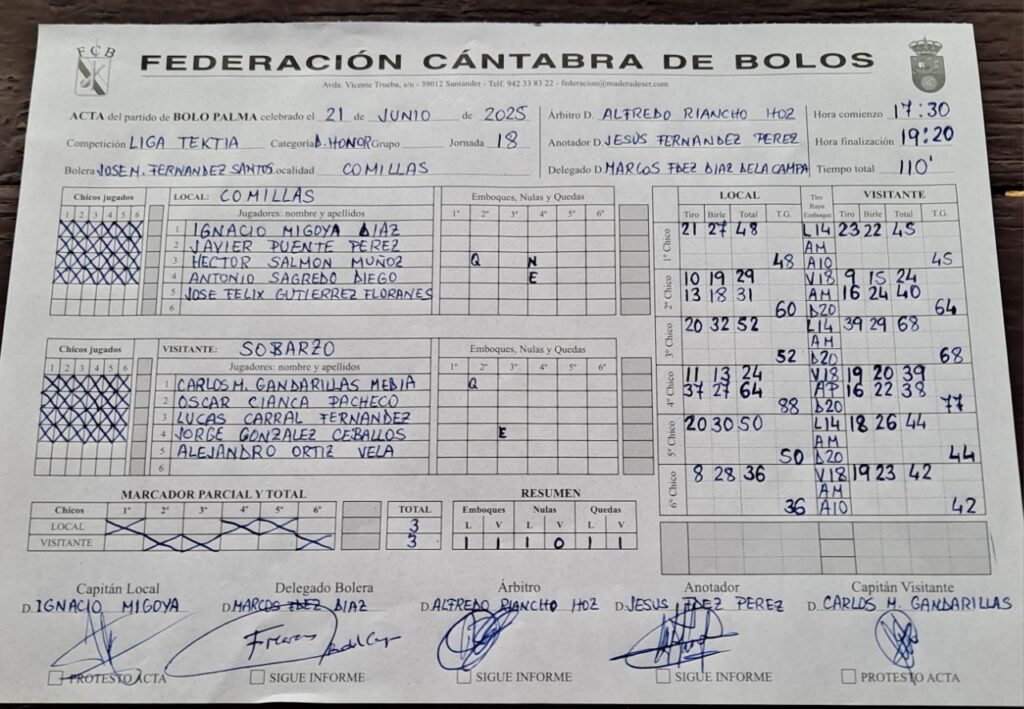 FCB
FEDERACIÓN CÁNTABRA DE BOLOS
Avda. Vicente Trueba, s/n - 39012 Santander - Telf. 942 33 83 22 - federacion@maderadeser.com
ACTA del partido de BOLO PALMA celebrado el 21 de JUNIO de 2025
Competición LIGA TEKTIA Categoría D. HONOR Grupo Jornada 18
Bolera JOSE M. FERNANDEZ SANTOS Localidad COMILLAS
Árbitro D. ALFREDO RIANCHO HOZ
Anotador D. JESÚS FERNANDEZ PEREZ
Delegado D. MARCOS FDEZ DIAZ DE LA CAMPA
Hora comienzo 17:30
Hora finalización 19:20
Tiempo total 110'
Chicos jugados LOCAL: COMILLAS Emboques, Nulas y Quedas
1 2 3 4 5 6 Jugadores: nombre y apellidos 1ª 2ª 3ª 4ª 5ª 6ª
1 IGNACIO MIGOYA DIAZ
2 JAVIER PUENTE PEREZ
3 HECTOR SALMON MUÑOZ Q N
4 ANTONIO SAGREDO DIEGO E
5 JOSE FELIX GUTIERREZ FLORANES
6
Chicos jugados VISITANTE: SOBARZO Emboques, Nulas y Quedas
1 2 3 4 5 6 Jugadores: nombre y apellidos 1ª 2ª 3ª 4ª 5ª 6ª
1 CARLOS M. GANDARILLAS MEDIA Q
2 OSCAR CIANCA PACHECO
3 LUCAS CARRAL FERNANDEZ
4 JORGE GONZALEZ CEBALLOS E
5 ALEJANDRO ORTIZ VELA
6
LOCAL Tiro Raya Emboque VISITANTE
Tiro Birle Total T.G. Tiro Birle Total T.G.
1º Chico 21 27 48 L14 23 22 45
AM
48 A10 45
2º Chico 10 19 29 V18 9 15 24
13 18 31 AM 16 24 40
60 D20 64
3º Chico 20 32 52 L14 39 29 68
AM
52 D20 68
4º Chico 11 13 24 V18 19 20 39
37 27 64 AP 16 22 38
88 D20 77
5º Chico 20 30 50 L14 18 26 44
AM
50 D20 44
6º Chico 8 28 36 V18 19 23 42
AM
36 A10 42
MARCADOR PARCIAL Y TOTAL
Chicos 1º 2º 3º 4º 5º 6º TOTAL
LOCAL 3
VISITANTE 3
RESUMEN
Emboques Nulas Quedas
L V L V L V
1 1 1 0 1 1
Capitán Local Delegado Bolera Árbitro Anotador Capitán Visitante
D. IGNACIO MIGOYA D. MARCOS FDEZ DIAZ D. ALFREDO RIANCHO HOZ D. JESUS FDEZ PEREZ D. CARLOS M. GANDARILLAS
PROTESTO ACTA SIGUE INFORME SIGUE INFORME SIGUE INFORME PROTESTO ACTA